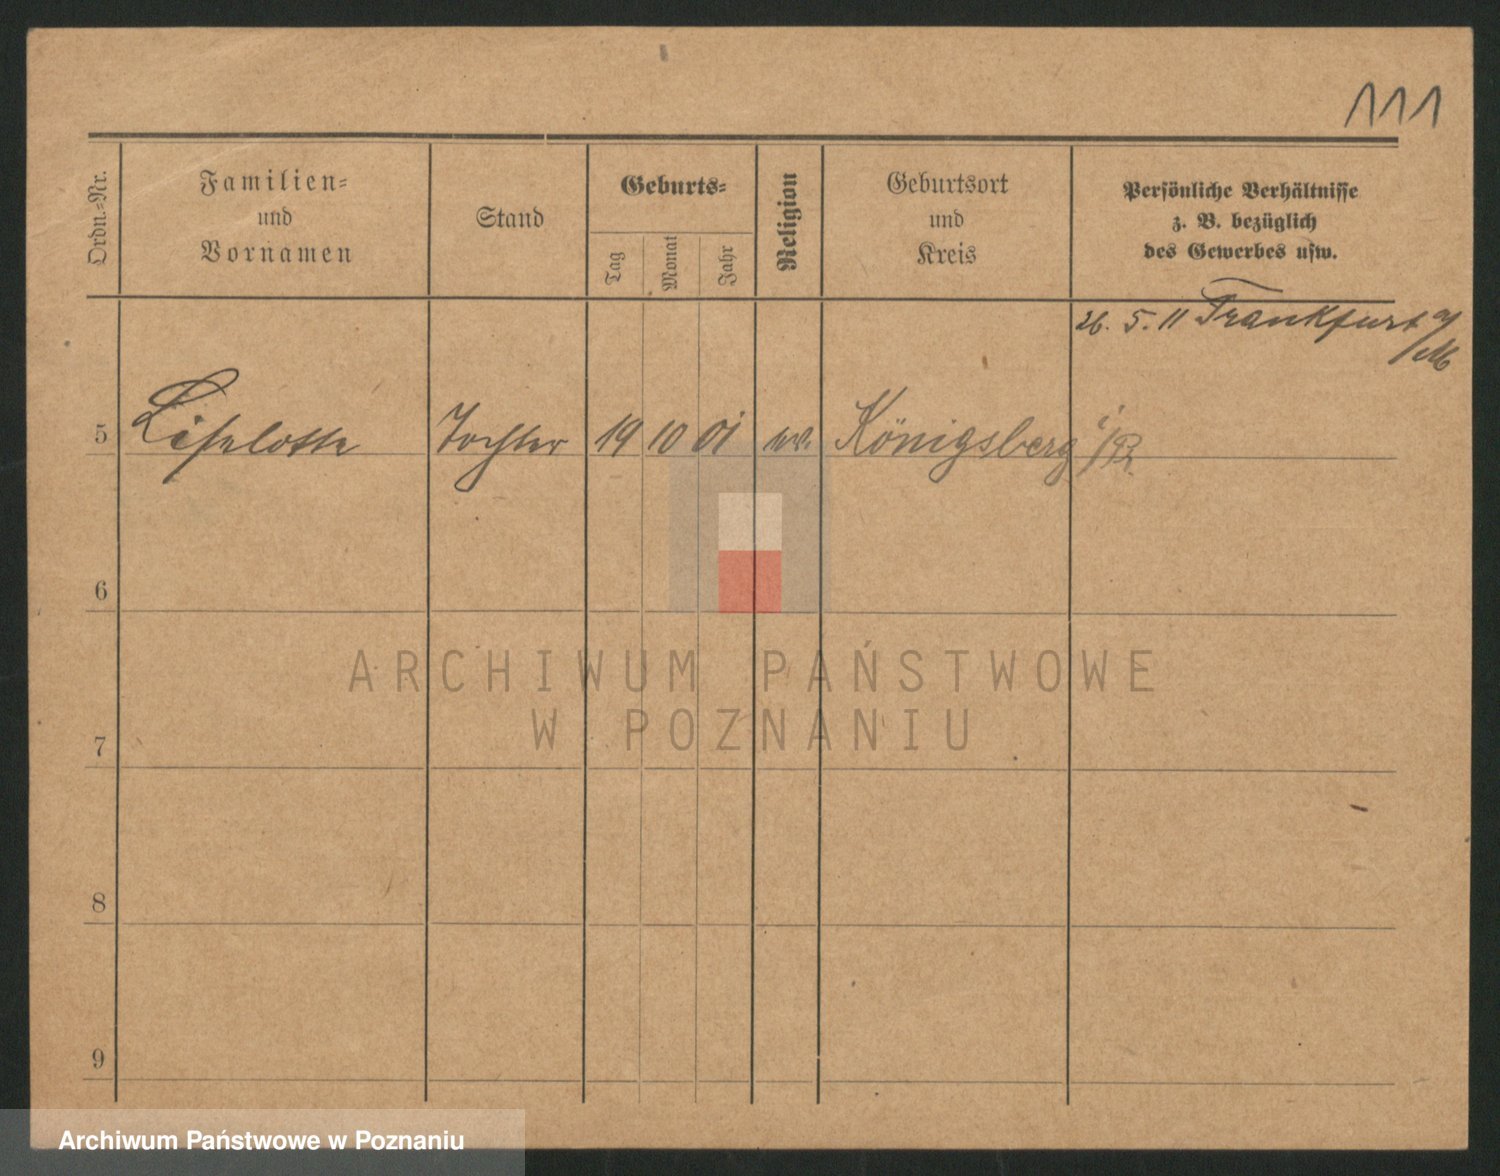 111
Ordn.-Nr.
Familien-
und
Vornamen
Stand
Geburts-
Tag
Monat
Jahr
Religion
Geburtsort
und
Kreis
Persönliche Verhältnisse
z. B. bezüglich
des Gewerbes usw.
26. 5. 11 Frankfurt a/M
5 Liselotte Tochter 19 10 01 ev. Königsberg i/Pr.
6
7
8
9
ARCHIWUM PAŃSTWOWE
W POZNANIU
Archiwum Państwowe w Poznaniu